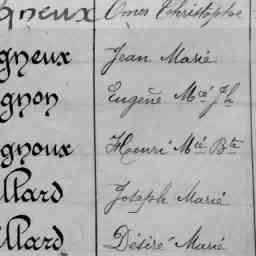 gneux Omer Christophe
gneux Jean Marié
gnon Eugène Mcé Jh
gnoux Henri Mcé Bte
llard Joseph Marié
llard Désiré Marié